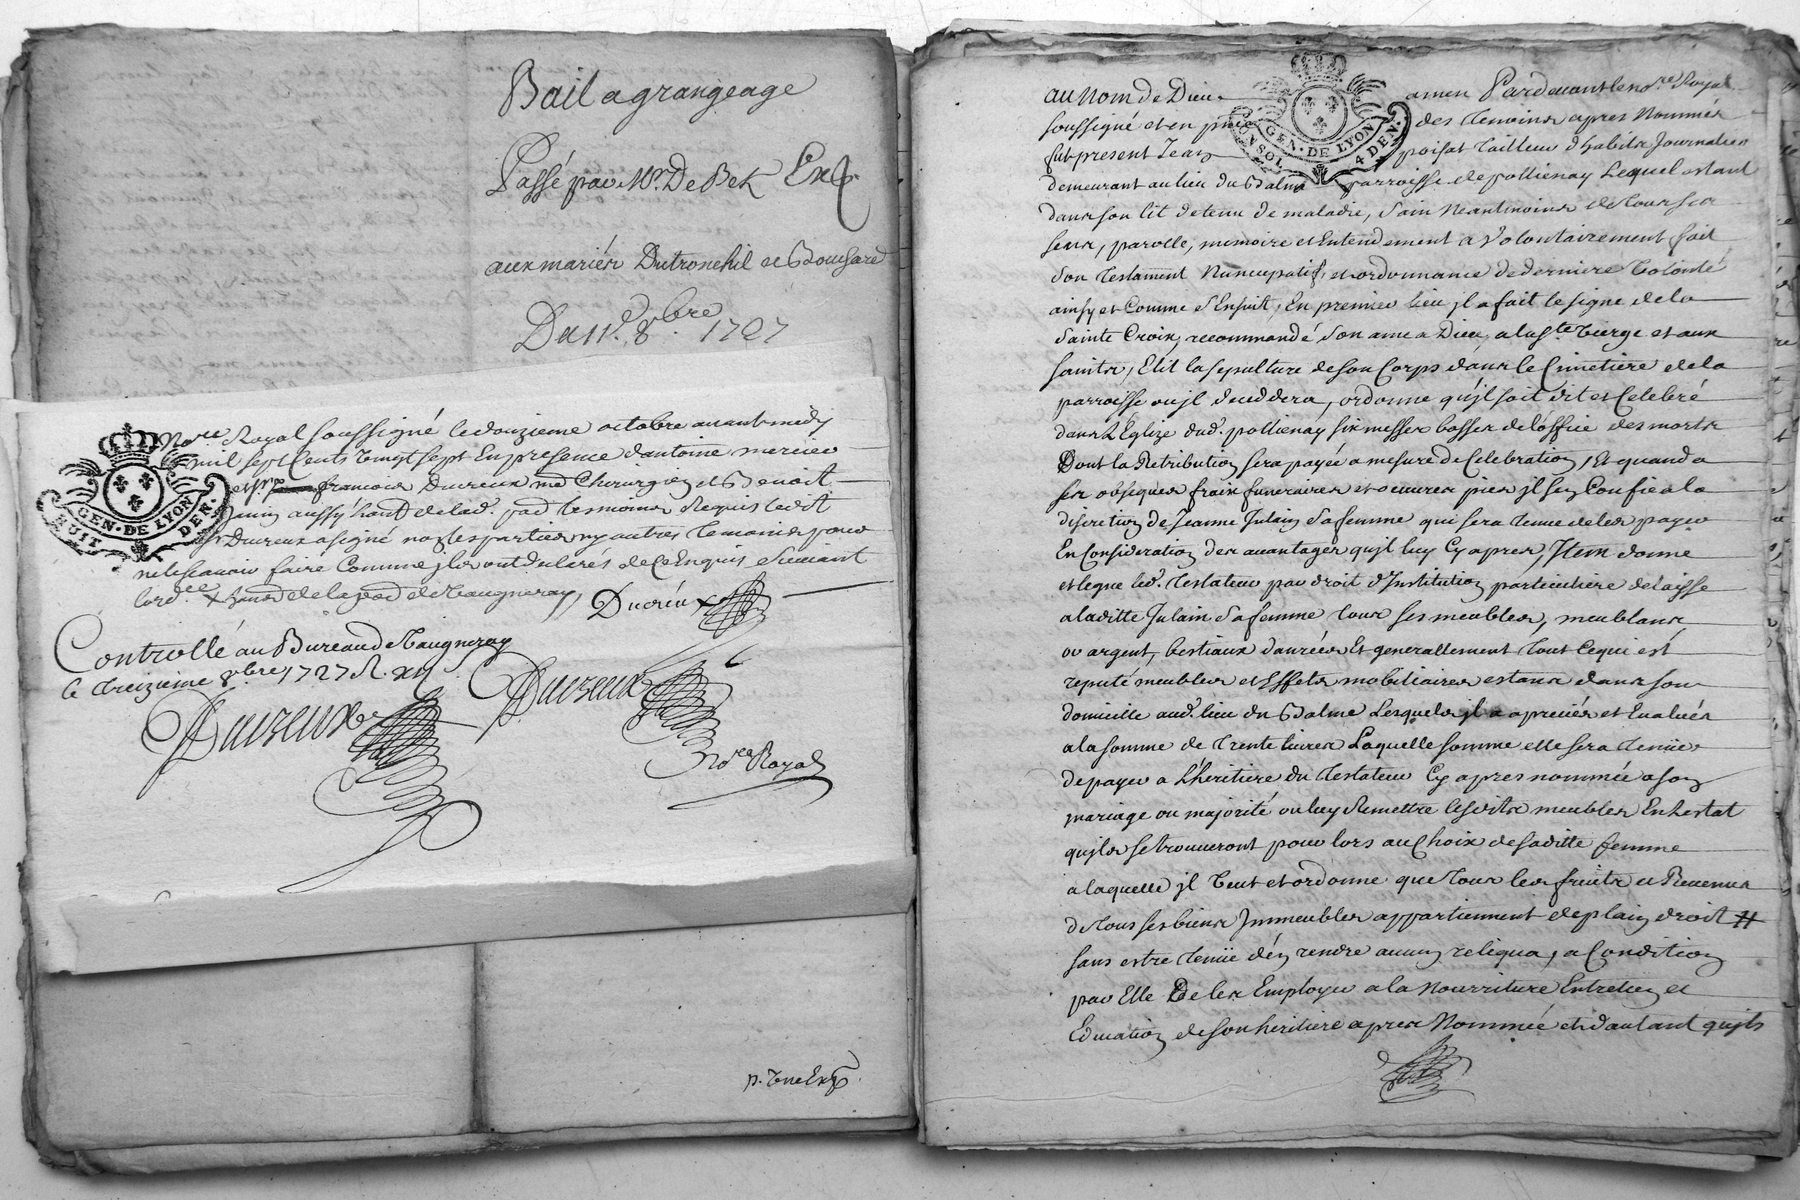 Bail a grangeage
Passé par Mr. De Bek
aux mariés Dutronchil et Bousard
Du 11e. 8bre 1727
Nore. Royal soussigné le douzieme octobre avant midy
mil sept Cents vingt sept En presence d'antoine mercier
et francois Ducreux md Chirurgien et Benoit
aussy habt de lad. tesmoins Requis ledit
Ducreux a signé non les parties ny autres temoins pour
ne le scavoir faire Comme ils ont declarés de ce Enquis suivant
lord.ce
GEN. DE LYON
HUIT DEN.
Ducreux
Controllé au Bureau de Vaugneray
le treizieme 8bre 1727 R. xij
Ducreux
Ducreux
Nore Royal
p. Une Exp.
au nom de Dieu amen Pardevant le nore. Royal
soussigné et en pnce des temoins apres Nommés
fut present Jean poisat Tailleur d'habits Journalier
CONSOL. GEN. DE LYON 4 DEN.
demeurant au lieu du Balme parroisse de pollienay Lequel estant
dans son lit detenu de maladie, sain Neantmoins de tous ses
sens, parolle, memoire et Entendement a Volontairement fait
son testament Nuncupatif, et ordonnance de derniere Volonté
ainsy et Comme s'Ensuit, En premier lieu jl a fait le signe de la
Sainte Croix, recommandé son ame a Dieu, a la ste. Vierge et aux
saints, Elit la sepulture de son Corps dans le Cimetiere de la
parroisse ou jl decedera, ordonne qu'jl soit dit et Celebré
dans L'Eglize dud. pollienay six messes basses de l'office des morts
Dont la Retribution sera payée a mesure de Celebration, Et quand a
ses obseques fraix funeraires et oeuvres pies jl s'en Confie a la
discretion de Jeanne Julain sa femme qui sera tenue de les payer
En Consideration des avantages qu'jl luy Cy apres, Jtem donne
et legue led. testateur par droit d'Institution particuliere delaisse
a laditte Julain sa femme tous ses meubles, meublans,
or argent, bestiaux danrées Et generallement tout Ce qui est
reputé meubles et Effets mobiliaires estans dans son
domicille aud. lieu du Balme Lesquels jl a apreciés et Evalués
a la somme de trente livres Laquelle somme elle sera tenüe
de payer a L'heritiere du testateur Cy apres nommée a son
mariage ou majorité ou luy Remettre lesdits meubles En lestat
qu'jls se trouveront pour lors au Choix de saditte femme
a laquelle jl Veut et ordonne que tous les fruits et Revenus
de tous ses biens Jmmeubles appartiennent de plain droit #
sans estre tenüe d'en rendre aucun reliqua, a Condition
par Elle De les Employer a la Nourriture Entretien et
Education de son heritiere apres Nommée et d'autant qu'jls